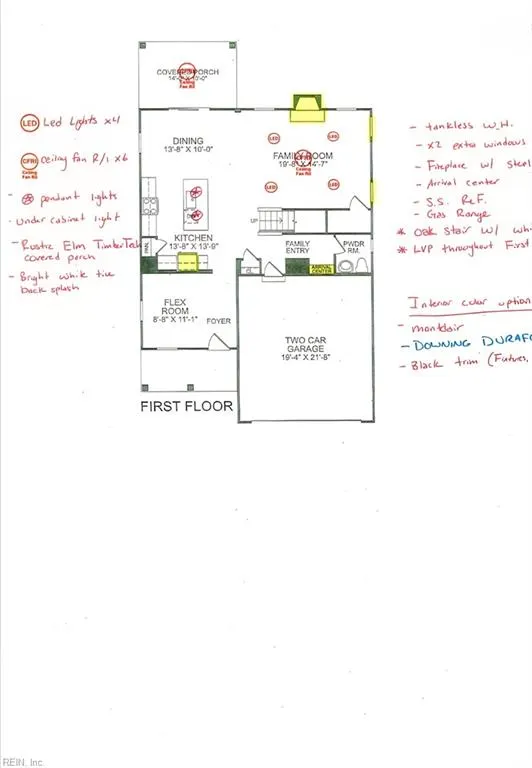 COVERED PORCH
14'-0" X 10'-0"
CFRI
Ceiling
Fan RI
LED Led Lights x4
CFRI Ceiling fan R/I x6
- pendant lights
- Under cabinet light
- Rustic Elm TimberTech
covered porch
- Bright white tile
back splash
DINING
13'-8" X 10'-0"
LED
LED
FAMILY ROOM
19'-8" X 14'-7"
CFRI
Ceiling
Fan RI
LED
LED
DW
UP
KITCHEN
13'-8" X 13'-9"
PAN.
FAMILY
ENTRY
PWDR
RM.
ARRIVAL
CENTER
FLEX
ROOM
8'-8" X 11'-1"
FOYER
TWO CAR
GARAGE
19'-4" X 21'-8"
FIRST FLOOR
- tankless W.H.
- x2 extra windows
- Fireplace w/ Steel
- Arrival center
- S.S. Ref.
- Gas Range
* Oak Stair w/ wh
* LVP throughout First
Interior color option
- montclair
- DOWNING DURAFO
- Black trim (Fixtures,
REIN, Inc.